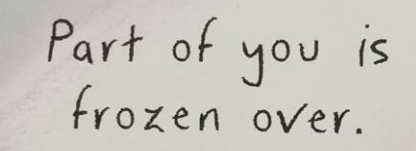 Part of you is
frozen over.